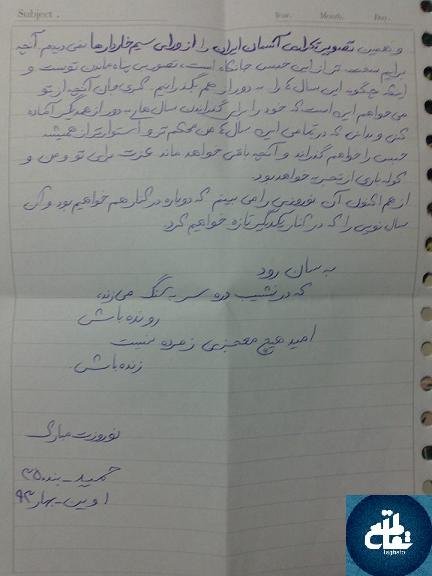 Subject . Year. Month. Day.
و همین تصویر تکراری آسمان ایران را از ورای سیم خاردارها نمی دیدم آنچه
برایم سخت تر از این حبس جانکاه است، تصویر بی پناه ماندن توست و
اینکه چگونه این سال ها را به دور از هم بگذرانیم. گرچه من آنچه از تو
می خواهم این است که خود را برای گذراندن سال های به دور از همدیگر آماده
کنی و بدانی که در تمامی این سال ها من محکم تر و استوارتر از همیشه
حبس را خواهم گذراند و آنچه باقی خواهد ماند عزت برای تو و من و
کوله باری از تجربه خواهد بود.
از هم اکنون آن نوروزی را می بینم که دوباره در کنار هم خواهیم بود و آن
سال نویی را که در کنار یکدیگر تازه خواهیم کرد.
به سان رود
که در نشیب دره سر به سنگ می زند،
رونده باش
امید هیچ معجزی ز مرده نیست
زنده باش
نوروزت مبارک
حمید - بند ۳۵۰
اوین - بهار ۹۳
laghato